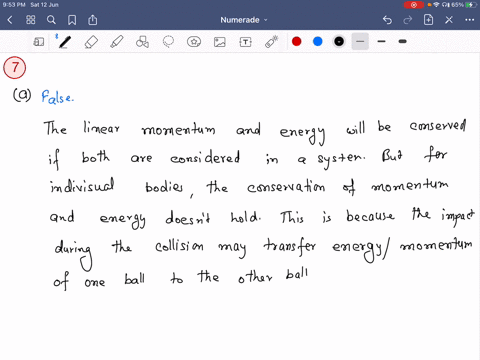 9:53 PM Sat 12 Jun
65%
Numerade
7
(a) False.
The linear momentum and energy will be conserved
if both are considered in a system. But for
indivisual bodies, the conservation of momentum
and energy doesn't hold. This is because the impact
during the collision may transfer energy/momentum
of one ball to the other ball